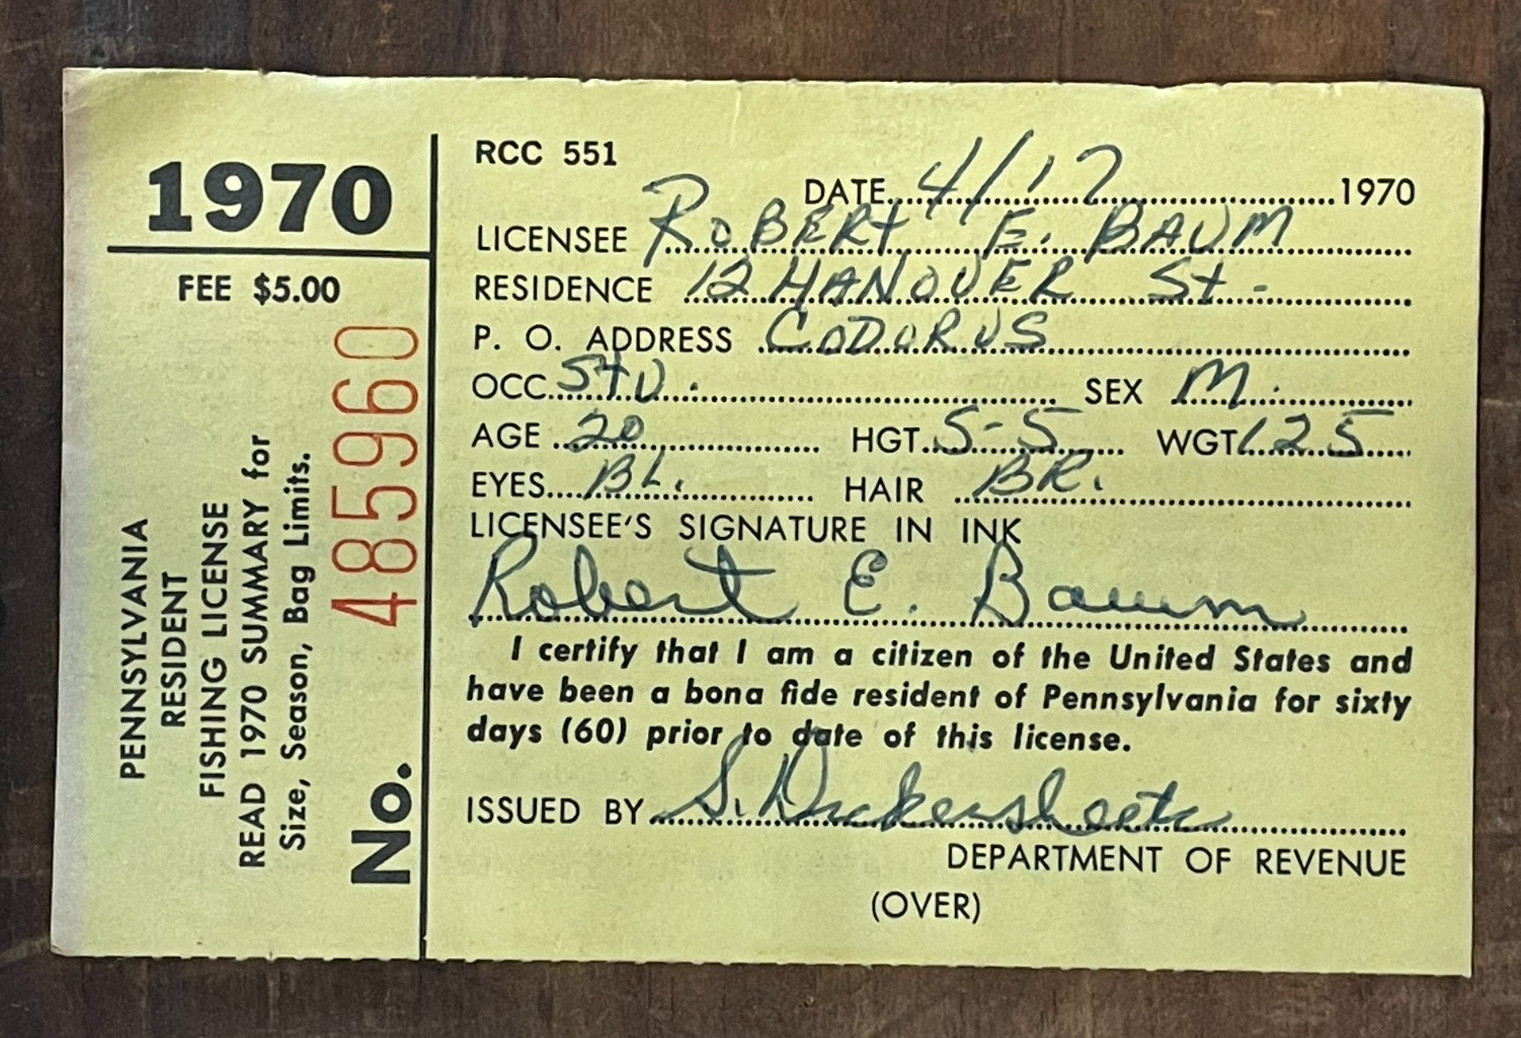 1970
FEE $5.00
PENNSYLVANIA
RESIDENT
FISHING LICENSE
READ 1970 SUMMARY for
Size, Season, Bag Limits.
No. 485960
RCC 551
DATE 4/17 1970
LICENSEE ROBERT E. BAUM
RESIDENCE 12 HANOVER St.
P. O. ADDRESS CODORUS
OCC. STU. SEX M.
AGE 20 HGT. 5-5 WGT. 125
EYES BL. HAIR BR.
LICENSEE'S SIGNATURE IN INK
Robert E. Baum
I certify that I am a citizen of the United States and
have been a bona fide resident of Pennsylvania for sixty
days (60) prior to date of this license.
ISSUED BY S. Dickensheets
DEPARTMENT OF REVENUE
(OVER)